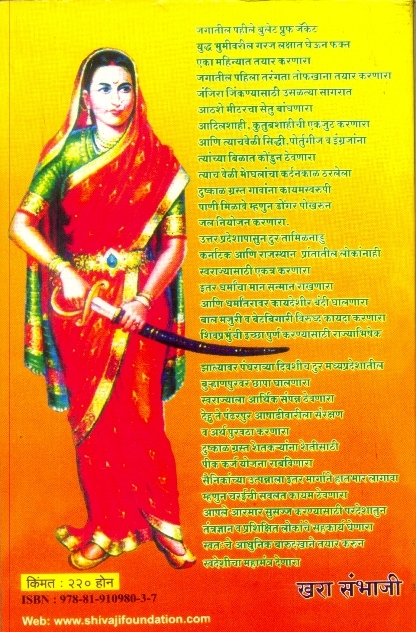 जगातील पहीले बुलेट प्रुफ जॅकेट
युद्ध भुमीवरील गरज लक्षात घेऊन फक्त
एका महिन्यात तयार करणारा
जगातील पहिला तरंगता तोफखाना तयार करणारा
जंजिरा जिंकण्यासाठी उसळत्या सागरात
आठशे मीटरचा सेतु बांधणारा
आदिलशाही, कुतुबशाहीची एकजुट करणारा
आणि त्याचवेळी सिद्धी, पोर्तुगीज व इंग्रजांना
त्यांच्या बिळात कोंडुन ठेवणारा
त्याच वेळी मोघलांचा कर्दनकाळ ठरलेला
दुष्काळ ग्रस्त गावांना कायमस्वरुपी
पाणी मिळावे म्हणुन डोंगर पोखरुन
जल नियोजन करणारा.
उत्तर प्रदेशापासुन दुर तामिळनाडु
कर्नाटक आणि राजस्थान प्रातातील लोकांनाही
स्वराज्यासाठी एकत्र करणारा
इतर धर्माचा मान सन्मान राखणारा
आणि धर्मांतरावर कायदेशीर बंदी घालणारा
बाल मजुरी व वेटबिगारी विरुध्द कायदा करणारा
शिवप्रभुंची इच्छा पुर्ण करण्यासाठी राज्याभिषेक
झाल्यावर पंधराव्या दिवशीच दुर मध्यप्रदेशातील
बुऱ्हाणपुरवर छापा घालणारा
स्वराज्याला आर्थिक संपन्न ठेवणारा
देहु ते पंढरपुर आषाढीवारीला संरक्षण
व अर्थ पुरवठा करणारा
दुष्काळ ग्रस्त शेतकऱ्यांना शेतीसाठी
पीक कर्ज योजना राबविणारा
सैनिकांच्या उत्पन्नाला इतर मार्गाने हातभार लागावा
म्हणुन चराईची सवलत कायम ठेवणारा
आपले आरमार सुसज्ज करण्यासाठी परदेशातुन
तंत्रज्ञान व प्रशिक्षित लोकांचे सहकार्य घेणारा
स्वतःचे आधुनिक बारुदखाने तयार करुन
स्वदेशीचा महामंत्र देणारा
खरा संभाजी
किंमत : २२० होन
ISBN : 978-81-910980-3-7
Web: www.shivajifoundation.com